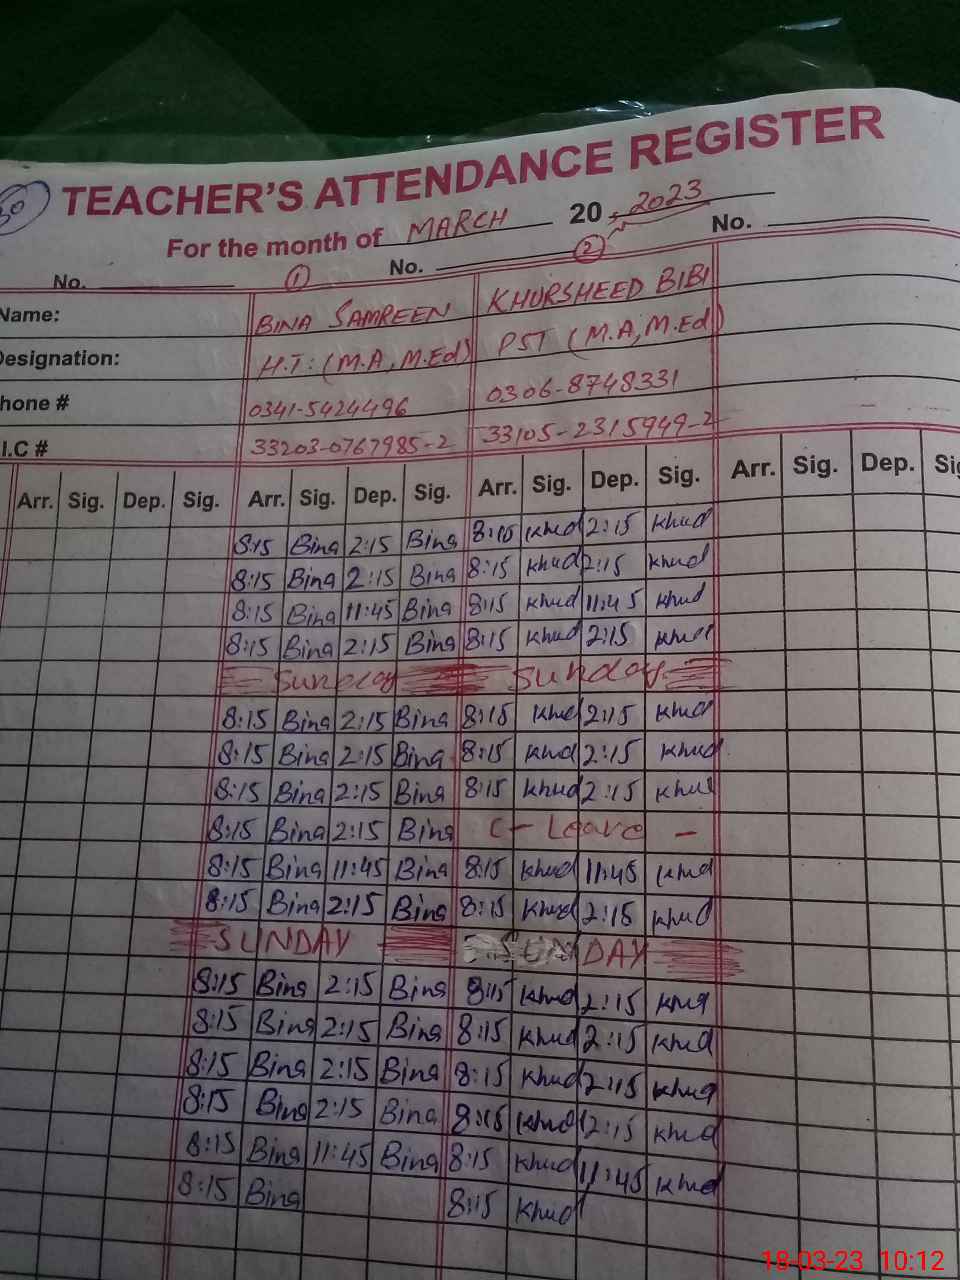 30
TEACHER'S ATTENDANCE REGISTER
For the month of MARCH 20 2023
No. 1 No. 2 No.
Name: BINA SAMREEN KHURSHEED BIBI
Designation: H.T: (M.A, M.Ed) PST (M.A, M.Ed)
hone # 0341-5424496 0306-8748331
I.C # 33203-0767985-2 33105-2315949-2
Arr. Sig. Dep. Sig. Arr. Sig. Dep. Sig. Arr. Sig. Dep. Sig. Arr. Sig. Dep. Sig
8:15 Bina 2:15 Bina 8:15 khud 2:15 khud
8:15 Bina 2:15 Bina 8:15 khud 2:15 khud
8:15 Bina 11:45 Bina 8:15 khud 11:45 khud
8:15 Bina 2:15 Bina 8:15 khud 2:15 khud
Sunday Sunday
8:15 Bina 2:15 Bina 8:15 khud 2:15 khud
8:15 Bina 2:15 Bina 8:15 khud 2:15 khud
8:15 Bina 2:15 Bina 8:15 khud 2:15 khud
8:15 Bina 2:15 Bina C- Leave -
8:15 Bina 11:45 Bina 8:15 khud 11:45 khud
8:15 Bina 2:15 Bina 8:15 khud 2:15 khud
SUNDAY SUNDAY
8:15 Bina 2:15 Bina 8:15 khud 2:15 khud
8:15 Bina 2:15 Bina 8:15 khud 2:15 khud
8:15 Bina 2:15 Bina 8:15 khud 2:15 khud
8:15 Bina 2:15 Bina 8:15 khud 2:15 khud
8:15 Bina 11:45 Bina 8:15 khud 11:45 khud
8:15 Bina 8:15 khud
18-03-23 10:12